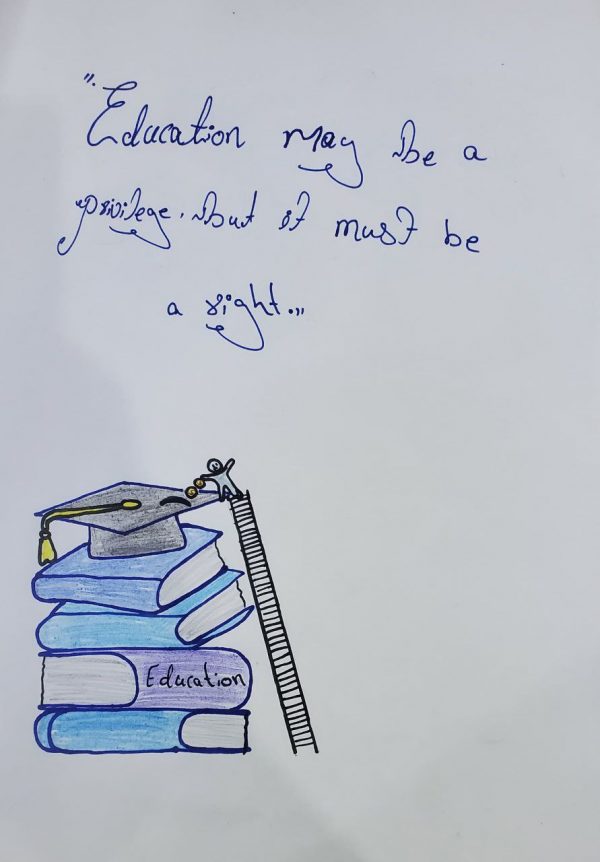 ". Education may be a
privilege, but it must be
a right...
Education